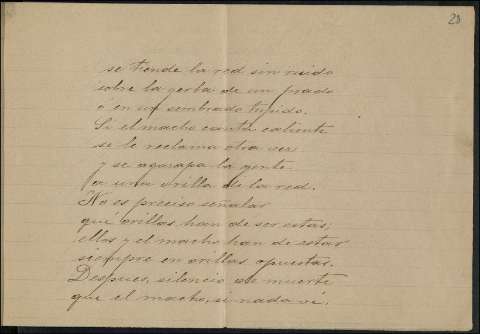 20
se tiende la red sin ruido
sobre la yerba de un prado
o en un sembrado tupido.
Si el macho canta caliente
se le reclama otra vez
y se agazapa la gente
a una orilla de la red.
No es preciso señalar
qué orillas han de ser estas;
ellos y el macho han de estar
siempre en orillas opuestas.
Despues, silencio de muerte
que el macho, si nada vé,